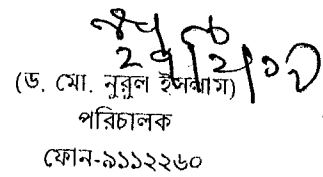 (ড. মো. নুরুল ইসলাম)
পরিচালক
ফোন-৯১১২২৬০